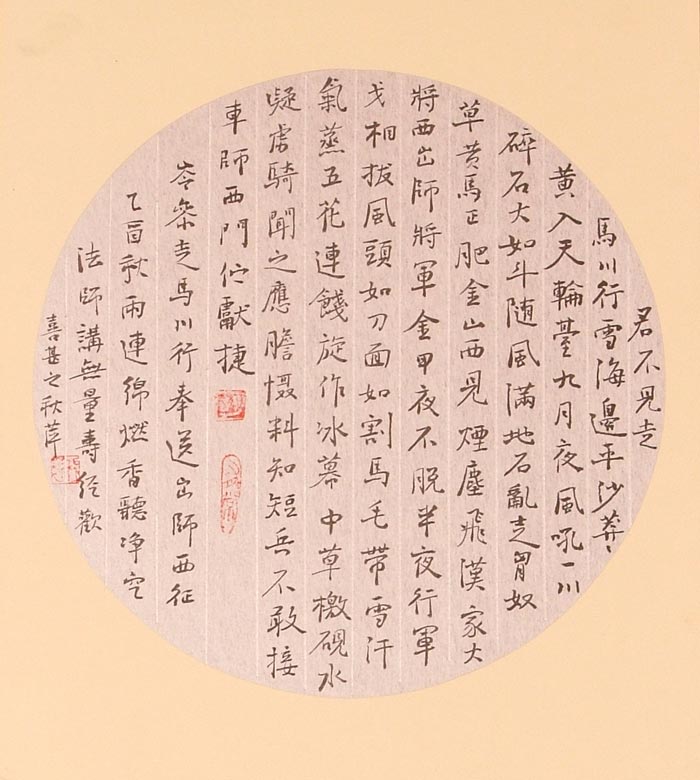 君不見走
馬川行雪海邊平沙莽〻
黄入天輪臺九月夜風吼一川
碎石大如斗随風滿地石亂走匈奴
草黄馬正肥金山西見煙塵飛漢家大
將西出師將軍金甲夜不脱半夜行軍
戈相拔風頭如刀面如割馬毛帶雪汗
氣蒸五花連餞旋作冰幕中草檄硯水
凝虜騎聞之應膽慑料知短兵不敢接
車師西門伫獻捷
岑參走馬川行奉送出師西征
乙酉秋雨連綿燃香聽净空
法師講無量壽經歡
喜甚之秋萍